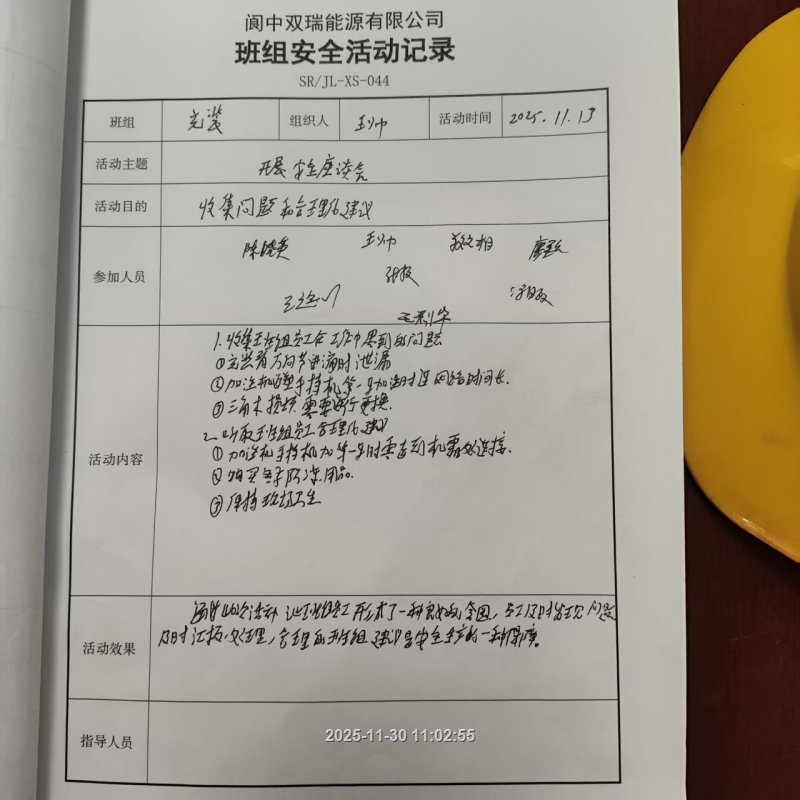 阆中双瑞能源有限公司
班组安全活动记录
SR/JL-XS-044
班组 充装 组织人 王帅 活动时间 2025.11.13
活动主题 开展安全座谈会
活动目的 收集问题和合理化建议
陈晓英 王帅
参加人员
1.收集班组员工在工作中遇到的问题
①充装前万向节进液时泄漏
②加注机手持机第一次加注时网络时间长.
③三角木损坏需要进行更换.
2.听取班组员工合理化建议
活动内容 ①加注机手持机加第一车时要查到机器好连接.
②购买冬季防冻用品.
③保持现场卫生
通过此次活动 让班组员工形成了一种良好的氛围,员工及时发现问题
活动效果 及时汇报、处理,合理的班组建议是安全生产的一种保障。
指导人员
2025-11-30 11:02:55